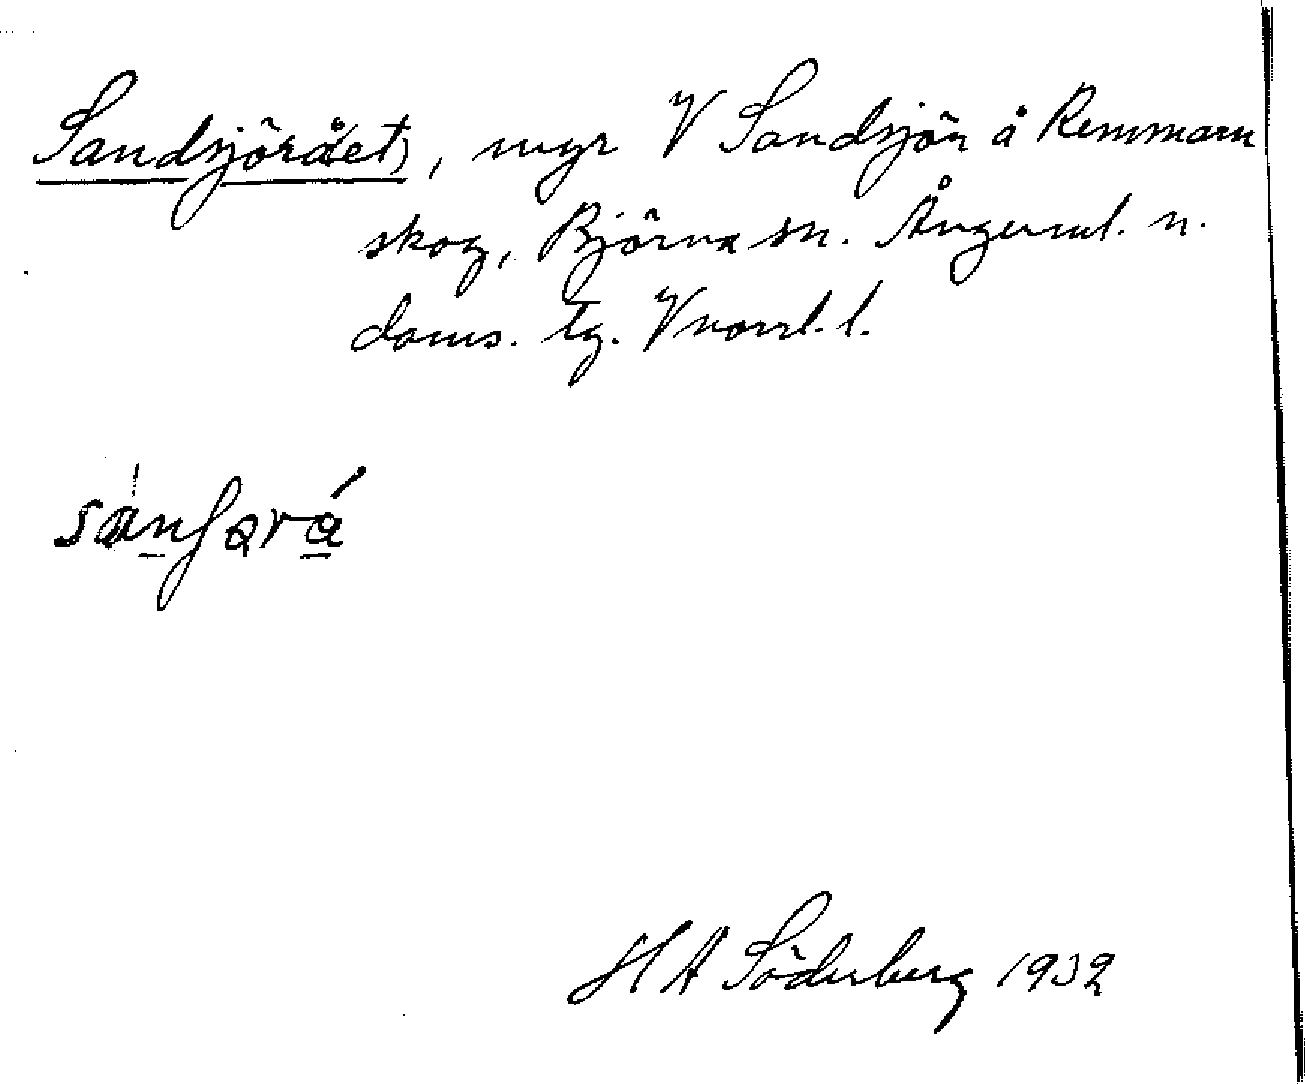 Sandsjörå(et), myr V Sandsjön å Remmarn
skog, Björna sn. Ångerml. n.
doms. tg. Vnorrl. l.
HA Söderberg 1932